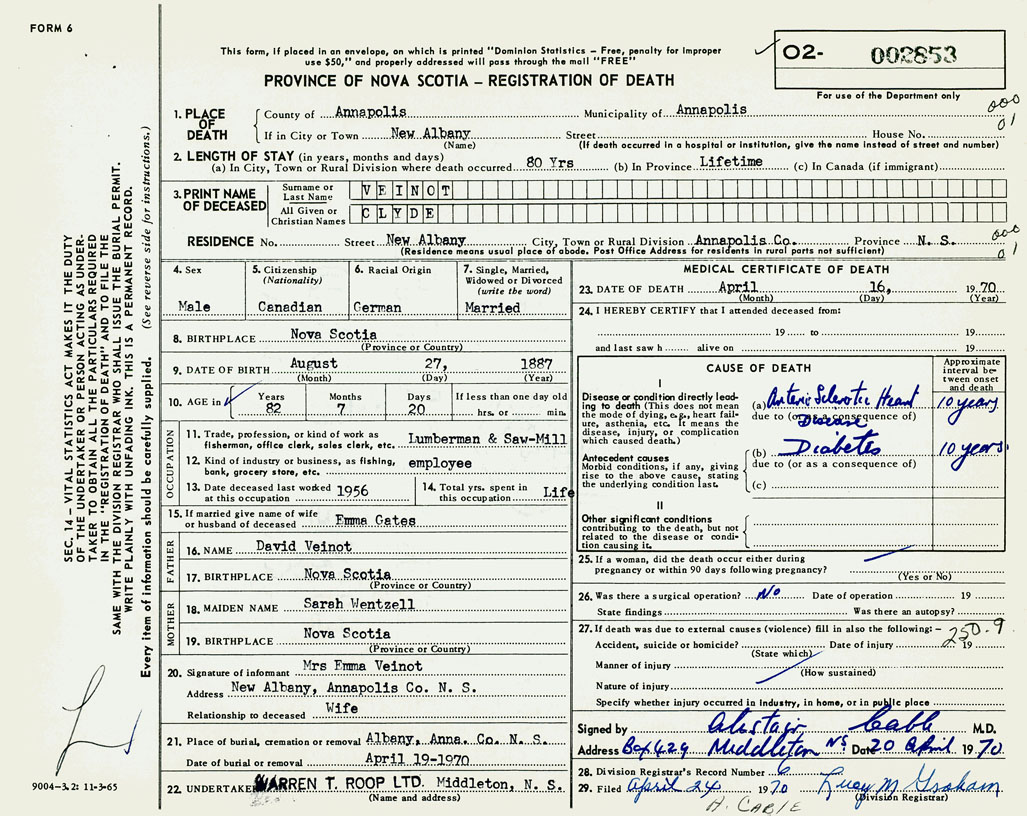 FORM 6
This form, if placed in an envelope, on which is printed "Dominion Statistics – Free, penalty for improper
use $50," and properly addressed will pass through the mail "FREE"
PROVINCE OF NOVA SCOTIA – REGISTRATION OF DEATH
O2- 002853
For use of the Department only
SEC. 14 – VITAL STATISTICS ACT MAKES IT THE DUTY
OF THE UNDERTAKER OR PERSON ACTING AS UNDER-
TAKER TO OBTAIN ALL THE PARTICULARS REQUIRED
IN THE "REGISTRATION OF DEATH" AND TO FILE THE
SAME WITH THE DIVISION REGISTRAR WHO SHALL ISSUE THE BURIAL PERMIT.
WRITE PLAINLY WITH UNFADING INK. THIS IS A PERMANENT RECORD.
Every item of information should be carefully supplied. (See reverse side for instructions.)
1. PLACE OF DEATH County of Annapolis Municipality of Annapolis 000
If in City or Town New Albany Street House No. 01
(Name) (If death occurred in a hospital or institution, give the name instead of street and number)
2. LENGTH OF STAY (in years, months and days)
(a) In City, Town or Rural Division where death occurred 80 Yrs (b) In Province Lifetime (c) In Canada (if immigrant)
3. PRINT NAME OF DECEASED Surname or Last Name VEINOT
All Given or Christian Names CLYDE
RESIDENCE No. Street New Albany City, Town or Rural Division Annapolis Co. Province N. S. 000
(Residence means usual place of abode. Post Office Address for residents in rural parts not sufficient) 01
4. Sex
Male
5. Citizenship
(Nationality)
Canadian
6. Racial Origin
German
7. Single, Married,
Widowed or Divorced
(write the word)
Married
8. BIRTHPLACE Nova Scotia
(Province or Country)
9. DATE OF BIRTH August 27, 1887
(Month) (Day) (Year)
10. AGE in Years Months Days If less than one day old
82 7 20 hrs. or min.
OCCUPATION
11. Trade, profession, or kind of work as
fisherman, office clerk, sales clerk, etc. Lumberman & Saw-Mill
12. Kind of industry or business, as fishing,
bank, grocery store, etc. employee
13. Date deceased last worked
at this occupation 1956
14. Total yrs. spent in
this occupation Life
15. If married give name of wife
or husband of deceased Emma Gates
FATHER
16. NAME David Veinot
17. BIRTHPLACE Nova Scotia
(Province or Country)
MOTHER
18. MAIDEN NAME Sarah Wentzell
19. BIRTHPLACE Nova Scotia
(Province or Country)
20. Signature of informant Mrs Emma Veinot
Address New Albany, Annapolis Co. N. S.
Relationship to deceased Wife
21. Place of burial, cremation or removal Albany, Anna. Co. N. S.
Date of burial or removal April 19-1970
22. UNDERTAKER WARREN T. ROOP LTD. Middleton, N. S.
(Name and address)
MEDICAL CERTIFICATE OF DEATH
23. DATE OF DEATH April 16, 1970
(Month) (Day) (Year)
24. I HEREBY CERTIFY that I attended deceased from:
19 to 19
and last saw h alive on 19
CAUSE OF DEATH
Approximate
interval be-
tween onset
and death
I
Disease or condition directly lead-
ing to death (This does not mean
the mode of dying, e.g., heart fail-
ure, asthenia, etc. It means the
disease, injury, or complication
which caused death.)
(a) Arterio Sclerotic Heart 10 years
due to (or as a consequence of)
Disease
Antecedent causes
Morbid conditions, if any, giving
rise to the above cause, stating
the underlying condition last.
(b) Diabetes 10 years
due to (or as a consequence of)
(c)
II
Other significant conditions
contributing to the death, but not
related to the disease or condi-
tion causing it.
25. If a woman, did the death occur either during
pregnancy or within 90 days following pregnancy?
(Yes or No)
26. Was there a surgical operation? No Date of operation 19
State findings Was there an autopsy?
27. If death was due to external causes (violence) fill in also the following: – 250.9
Accident, suicide or homicide? Date of injury 19
(State which)
Manner of injury
(How sustained)
Nature of injury
Specify whether injury occurred in industry, in home, or in public place
Signed by Alistair Cable M.D.
Address Box 429 Middleton NS Date 20 April 1970
28. Division Registrar's Record Number 6
29. Filed April 24 1970 Lucy M Graham
(Division Registrar)
A. CABLE
9004-3.2: 11-3-65